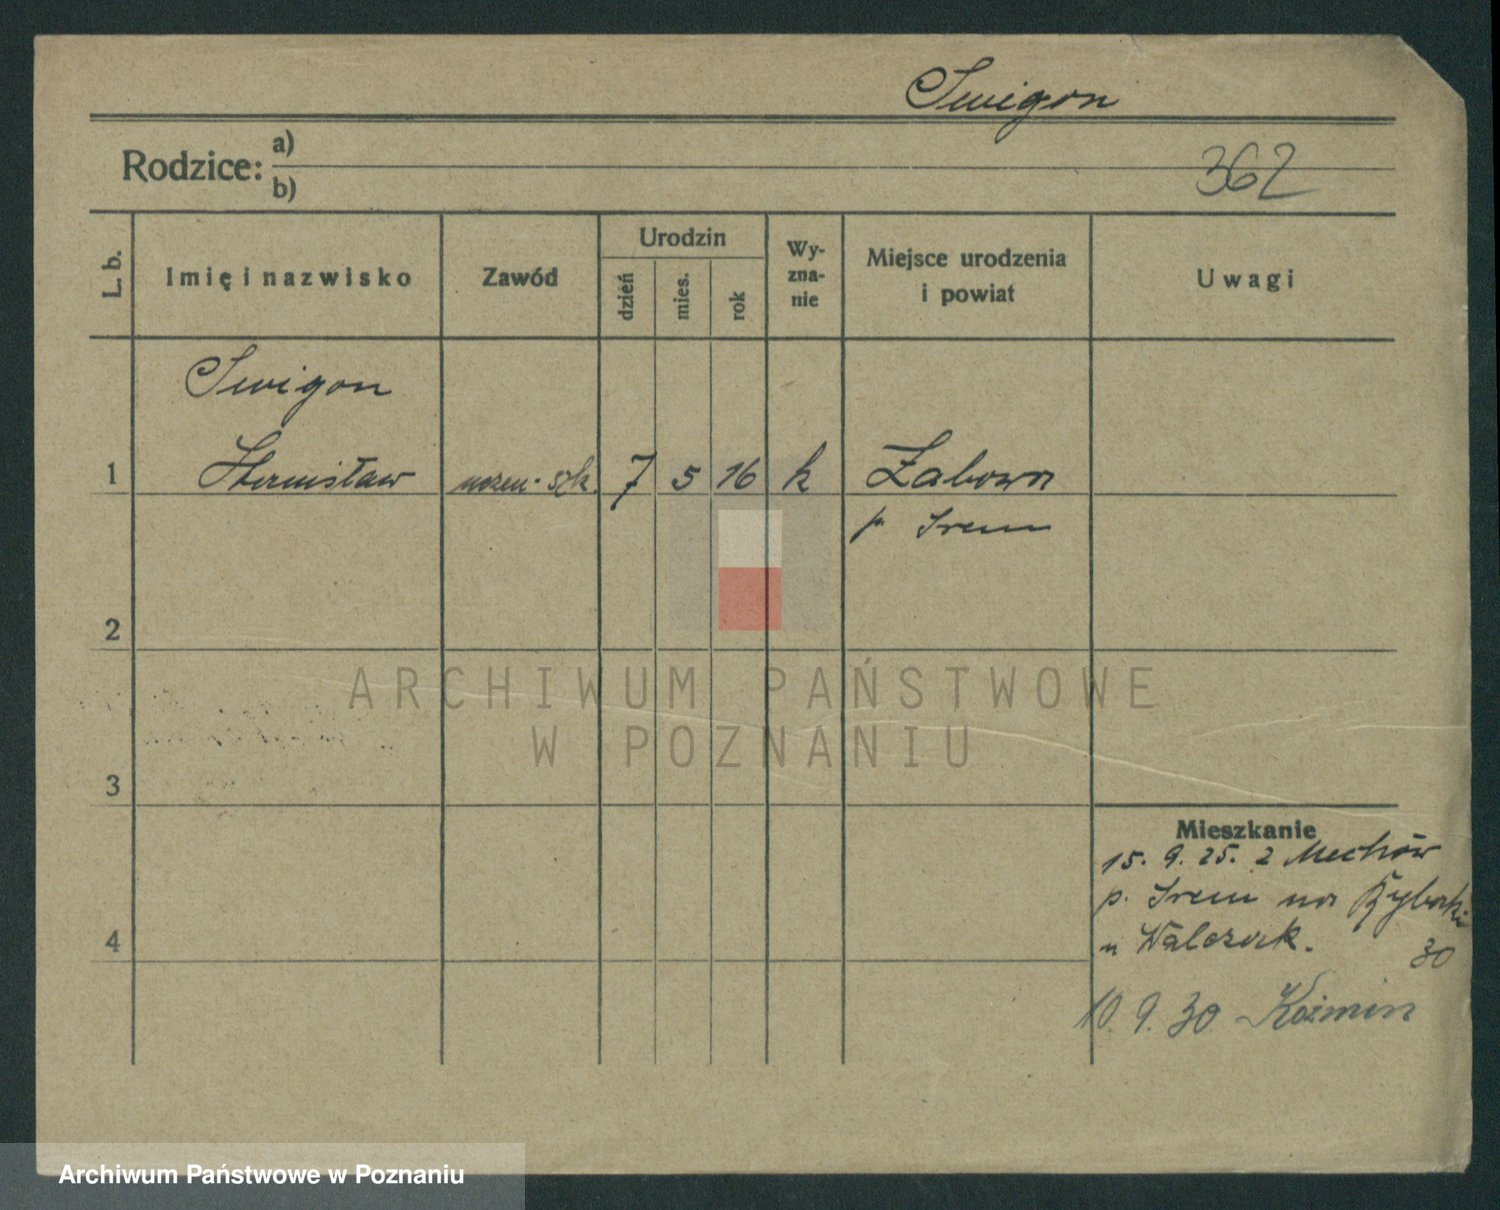 Swigon
Rodzice: a)
b)
362
L. b.
Imię i nazwisko
Zawód
Urodzin
dzień
mies.
rok
Wy-
zna-
nie
Miejsce urodzenia
i powiat
Uwagi
Swigon
1 Stanisław uczeń szk. 7 5 16 k Żabowo
p. Srem
2
ARCHIWUM PAŃSTWOWE
W POZNANIU
3
Mieszkanie
15. 9. 25. z Mechów
p. Srem na Rybaki
u Walczak. 30
4
10. 9. 30 Koźmin
Archiwum Państwowe w Poznaniu